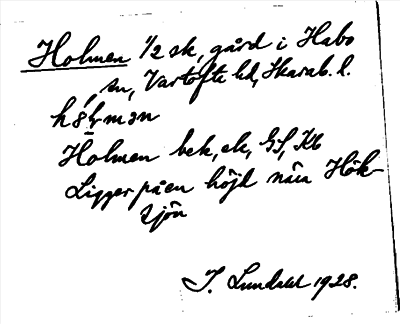 Holmen 1/2 sk, gård i Habo
sn, Vartofta hd, Skarab. l.
Holmen bek, ek, GS, Kb
Ligger på en höjd nära Hök-
sjön
J. Lundahl 1928.